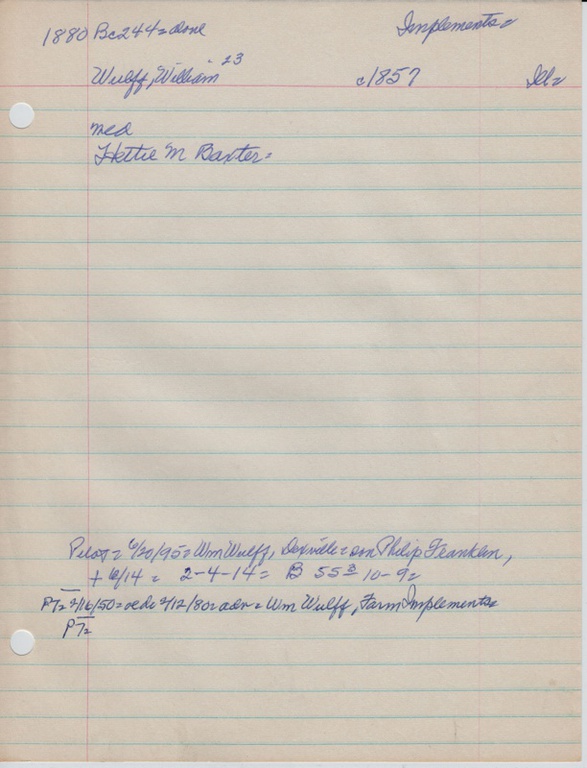 1880 Bc244 = done Implements =
Wulff, William 23 c1857 Ill =
med
Hettie M Baxter =
Pilot = 6/20/95 = Wm Wulff, Dexville = son Philip Franklin,
+ 6/14 = 2-4-14 = B 55 10-9 =
PT = 2/16/50 = 2/12/80 = adv = Wm Wulff, Farm Implements =
PT =